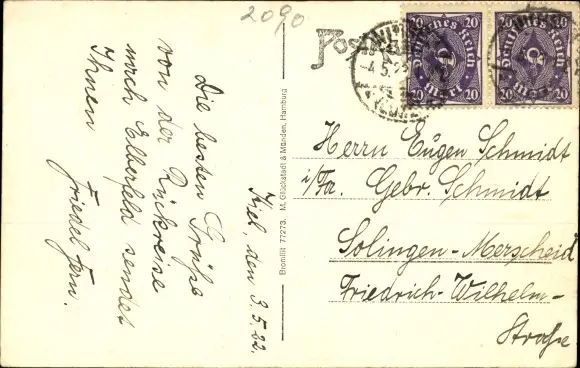 2090
Die besten Grüße
von der Rückreise
nach Elberfeld sendet
Ihnen
Friedel Jern.
Kiel, den 3.5.22.
Bromfilt 77273. M. Glückstadt & Münden, Hamburg
Post
20 20
Deutsches Reich
20 Mark 20
20 20
Deutsches Reich
20 Mark 20
-4.5.2
Herrn Eugen Schmidt
i/Fa. Gebr. Schmidt
Solingen-Merscheid
Friedrich-Wilhelm-
Straße